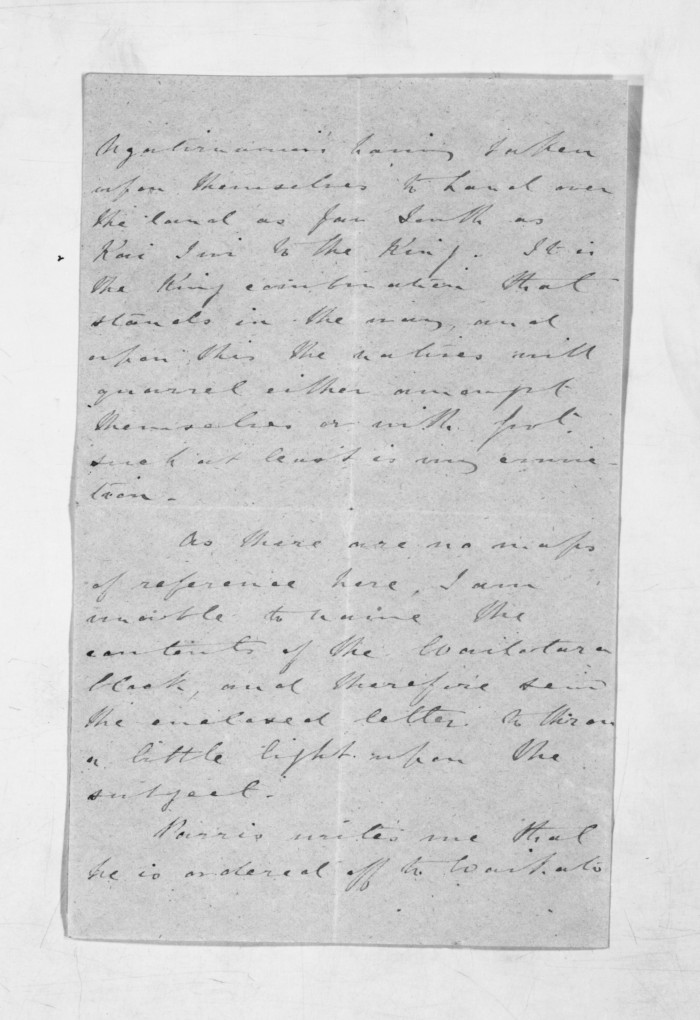 Ngatiruanui's having taken
upon themselves to hand over
the land as far South as
Kai Iwi to the King. It is
the King combination that
stands in the way, and
upon this the natives will
quarrel either amongst
themselves or with Govt.
such at least is my convic-
tion -
As there are no maps
of reference here, I am
unable to name the
contents of the Waitotara
block, and therefore send
the enclosed letter to throw
a little light upon the
subject -
Parris writes me that
he is ordered off to Waikato